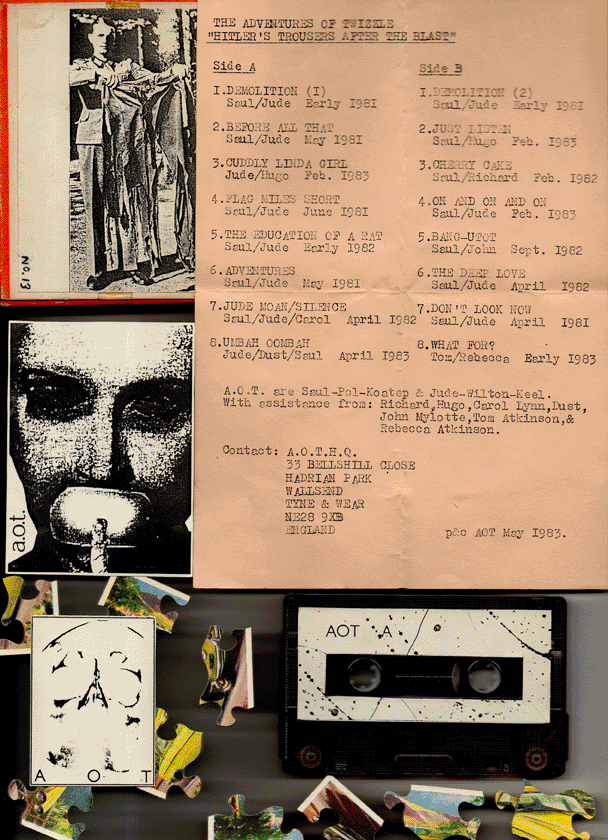 THE ADVENTURES OF TWIZZLE
"HITLER'S TROUSERS AFTER THE BLAST"
Side A
1.DEMOLITION (1)
Saul/Jude Early 1981
2.BEFORE ALL THAT
Saul/Jude May 1981
3.CUDDLY LINDA GIRL
Jude/Hugo Feb. 1983
4.FLAG MILES SHORT
Saul/Jude June 1981
5.THE EDUCATION OF A RAT
Saul/Jude Early 1982
6.ADVENTURES
Saul/Jude May 1981
7.JUDE MOAN/SILENCE
Saul/Jude/Carol April 1982
8.UMBAH OOMBAH
Jude/Dust/Saul April 1983
Side B
1.DEMOLITION (2)
Saul/Jude Early 1981
2.JUST LISTEN
Saul/Hugo Feb. 1983
3.CHERRY CAKE
Saul/Richard Feb. 1982
4.ON AND ON AND ON
Saul/Jude Feb. 1983
5.BANG-UTOT
Saul/John Sept. 1982
6.THE DEEP LOVE
Saul/Jude April 1982
7.DON'T LOOK NOW
Saul/Jude April 1981
8.WHAT FOR?
Tom/Rebecca Early 1983
A.O.T. are Saul-Pol-Koatep & Jude-Wilton-Keel.
With assistance from: Richard,Hugo,Carol Lynn,Dust,
John Mylotte,Tom Atkinson,&
Rebecca Atkinson.
Contact: A.O.T.H.Q.
33 BELLSHILL CLOSE
HADRIAN PARK
WALLSEND
TYNE & WEAR
NE28 9XB
ENGLAND
p&c AOT May 1983.
NO.13
a.o.t.
A O T
AOT A